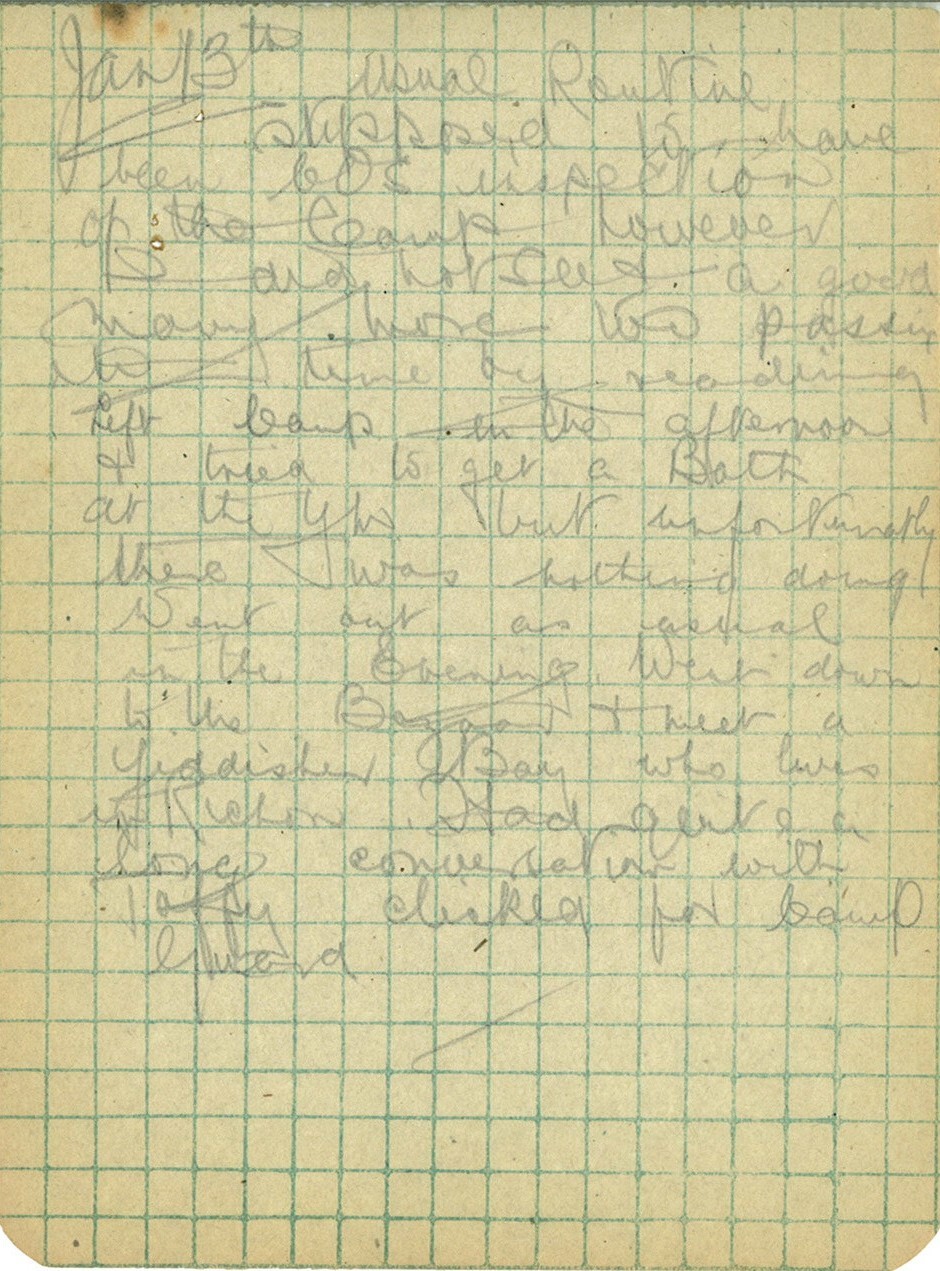 Jan 13th usual Routine
supposed to have
been COs inspection
of the Camp however
did not see a good
many more
time by reading
left Camp in the afternoon
& tried to get a Bath
at the but unfortunatly
there was nothing doing
Went out as usual
in the Evening. Went down
to the Bazaar & meet a
Yiddisher Boy who lives
in Richon. Had quite a
long conversation with
clicked for Camp
Guard